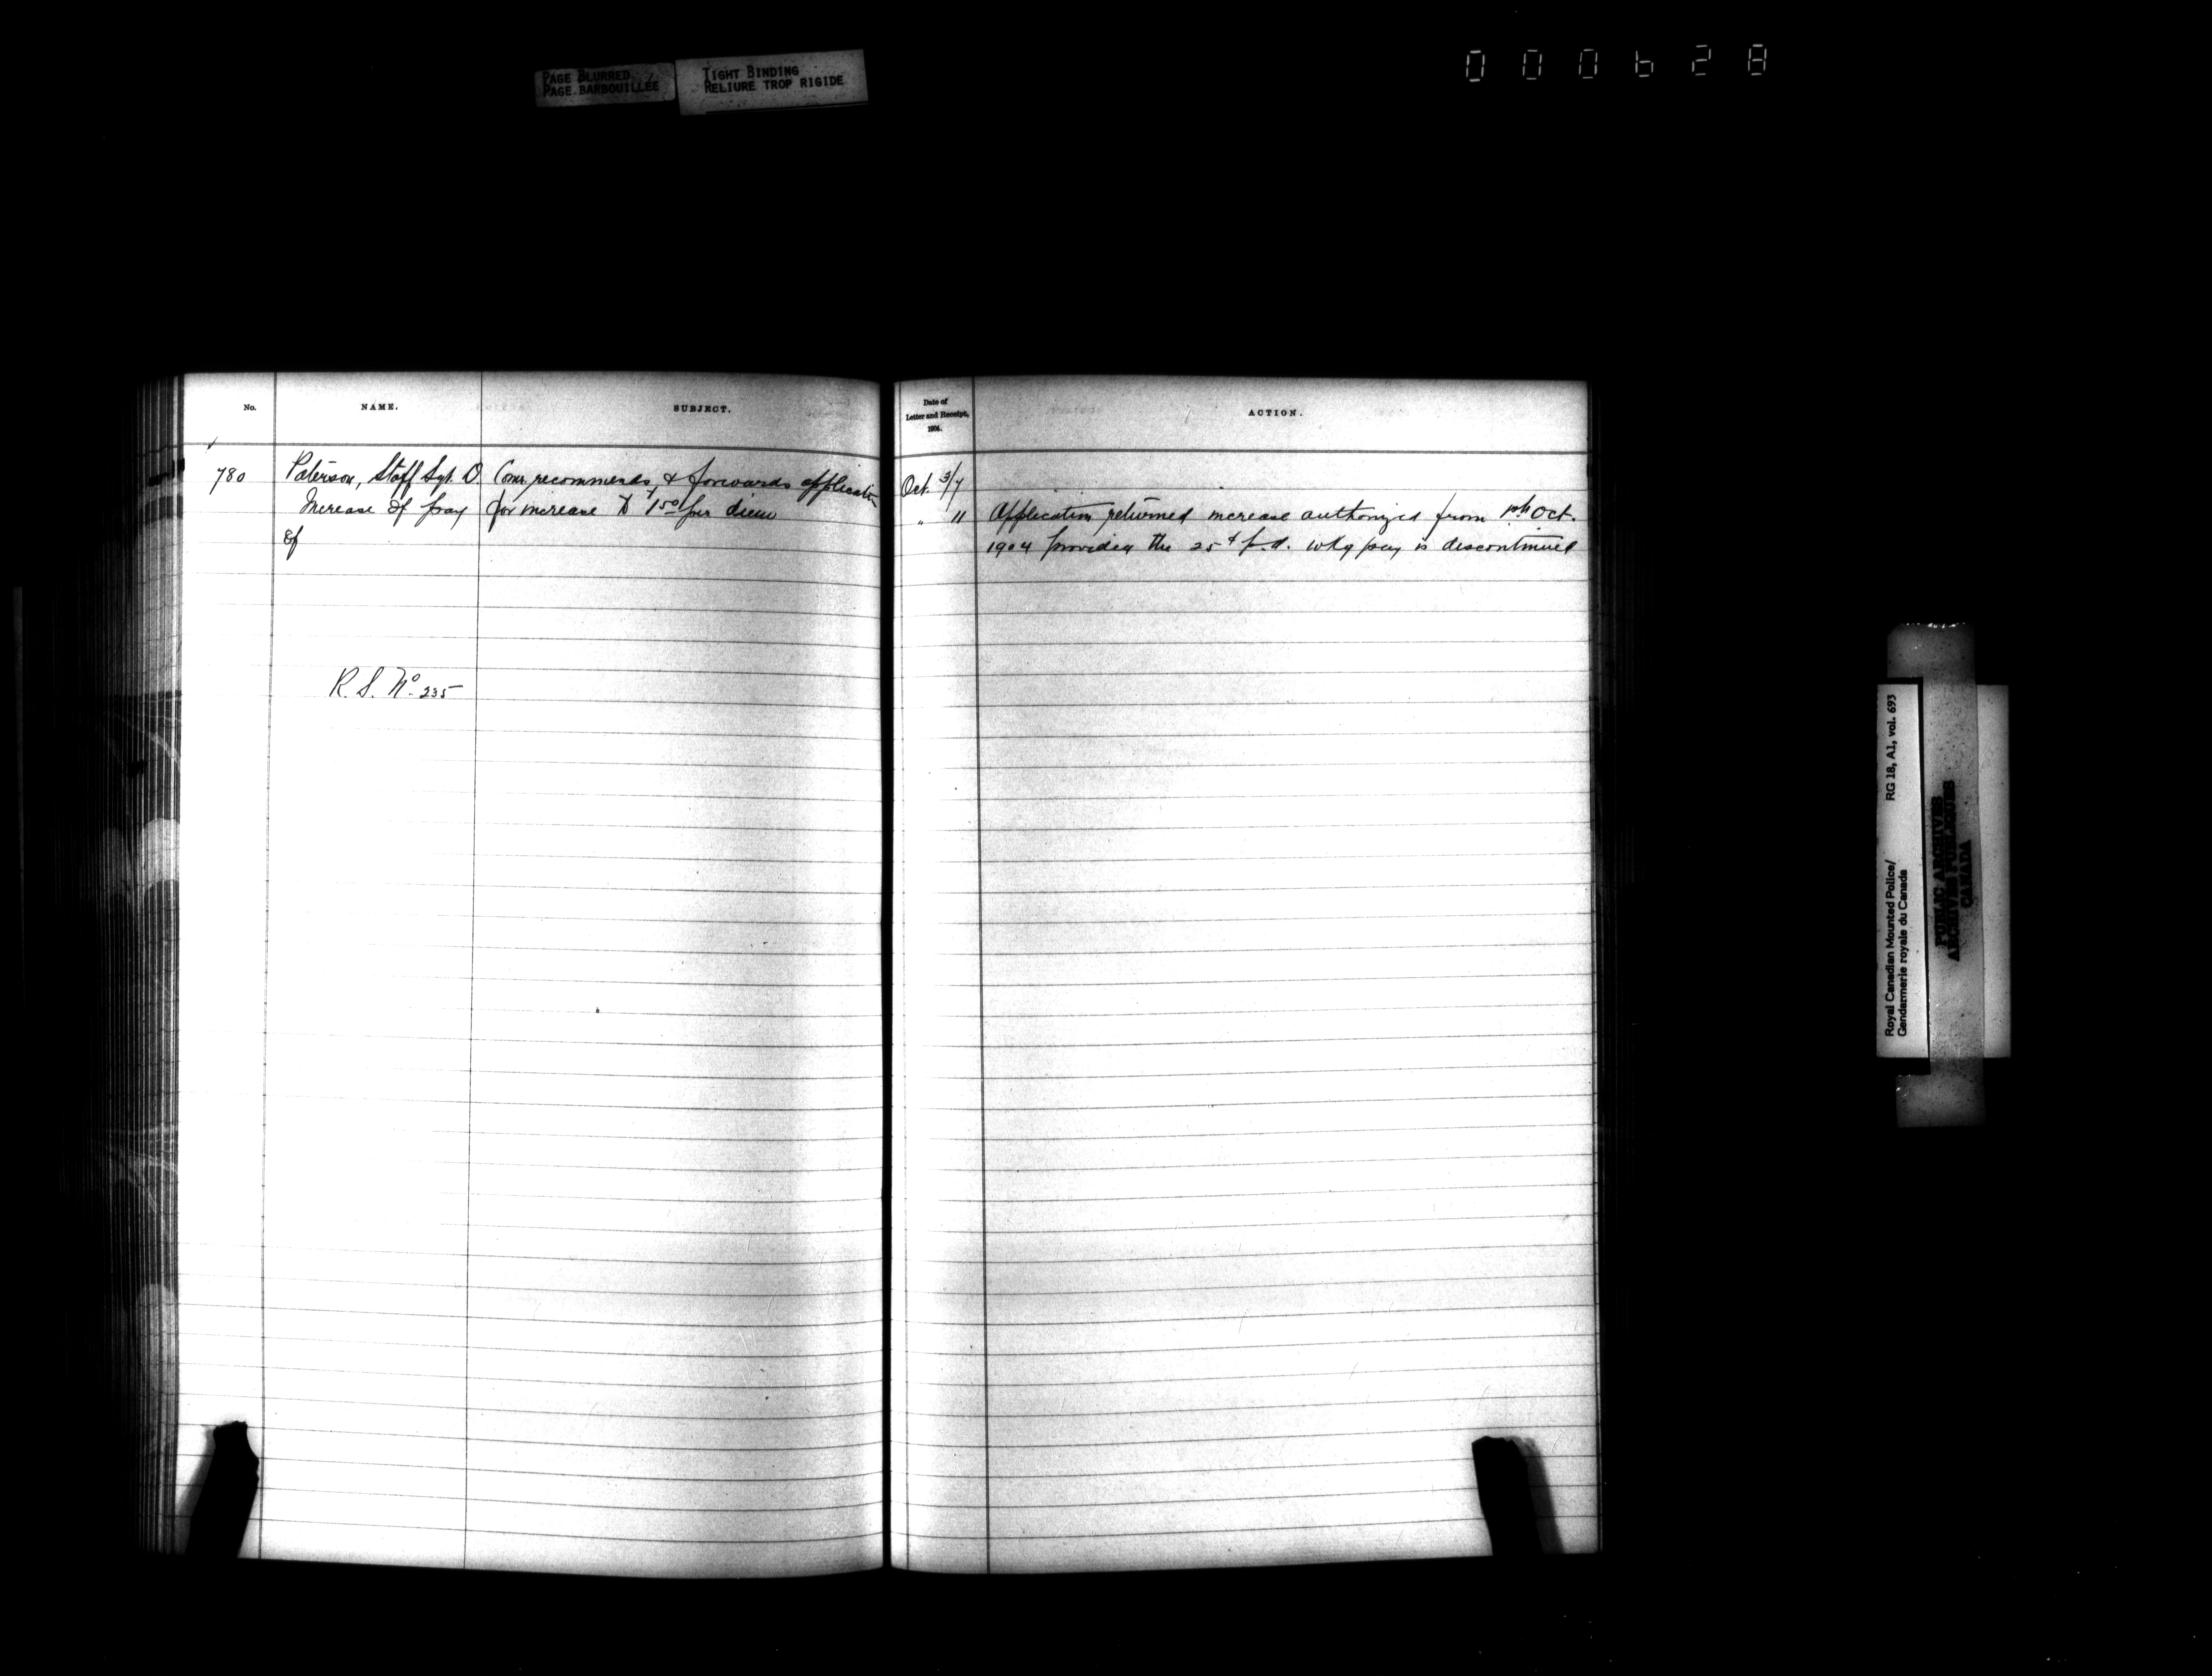 PAGE BLURRED
PAGE BARBOUILLÉE
TIGHT BINDING
RELIURE TROP RIGIDE
000628
No.
NAME.
SUBJECT.
Date of
Letter and Receipt,
1904.
ACTION.
780
Paterson, Staff Sgt. D
Increase of pay
of
Comr. recommends & forwards application
for increase to $1.50 per diem
Oct. 3/7
" 11
Application returned increase authorized from 1st Oct.
1904 provided the 25¢ p.d. wkg pay is discontinued
R. S. No. 235
Royal Canadian Mounted Police/
Gendarmerie royale du Canada
RG 18, A1, vol. 693
PUBLIC ARCHIVES
ARCHIVES PUBLIQUES
CANADA